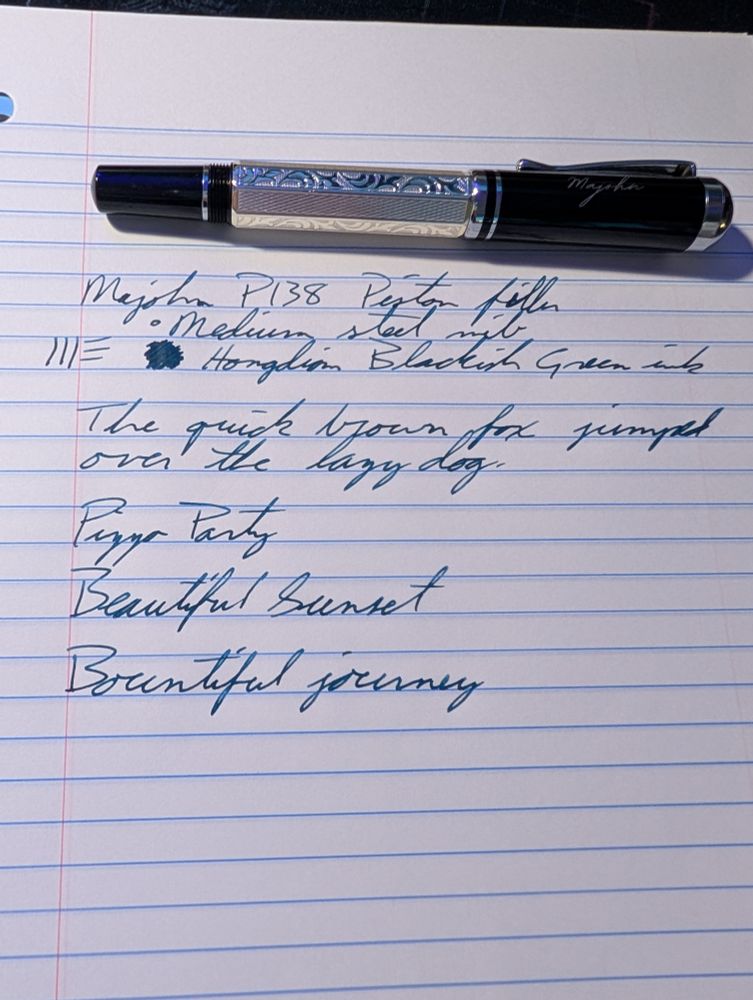 Majohn
Majohn P138 Piston filler
• Medium steel nib
Hongdian Blackish Green ink
The quick brown fox jumped
over the lazy dog.
Pizza Party
Beautiful Sunset
Bountiful journey